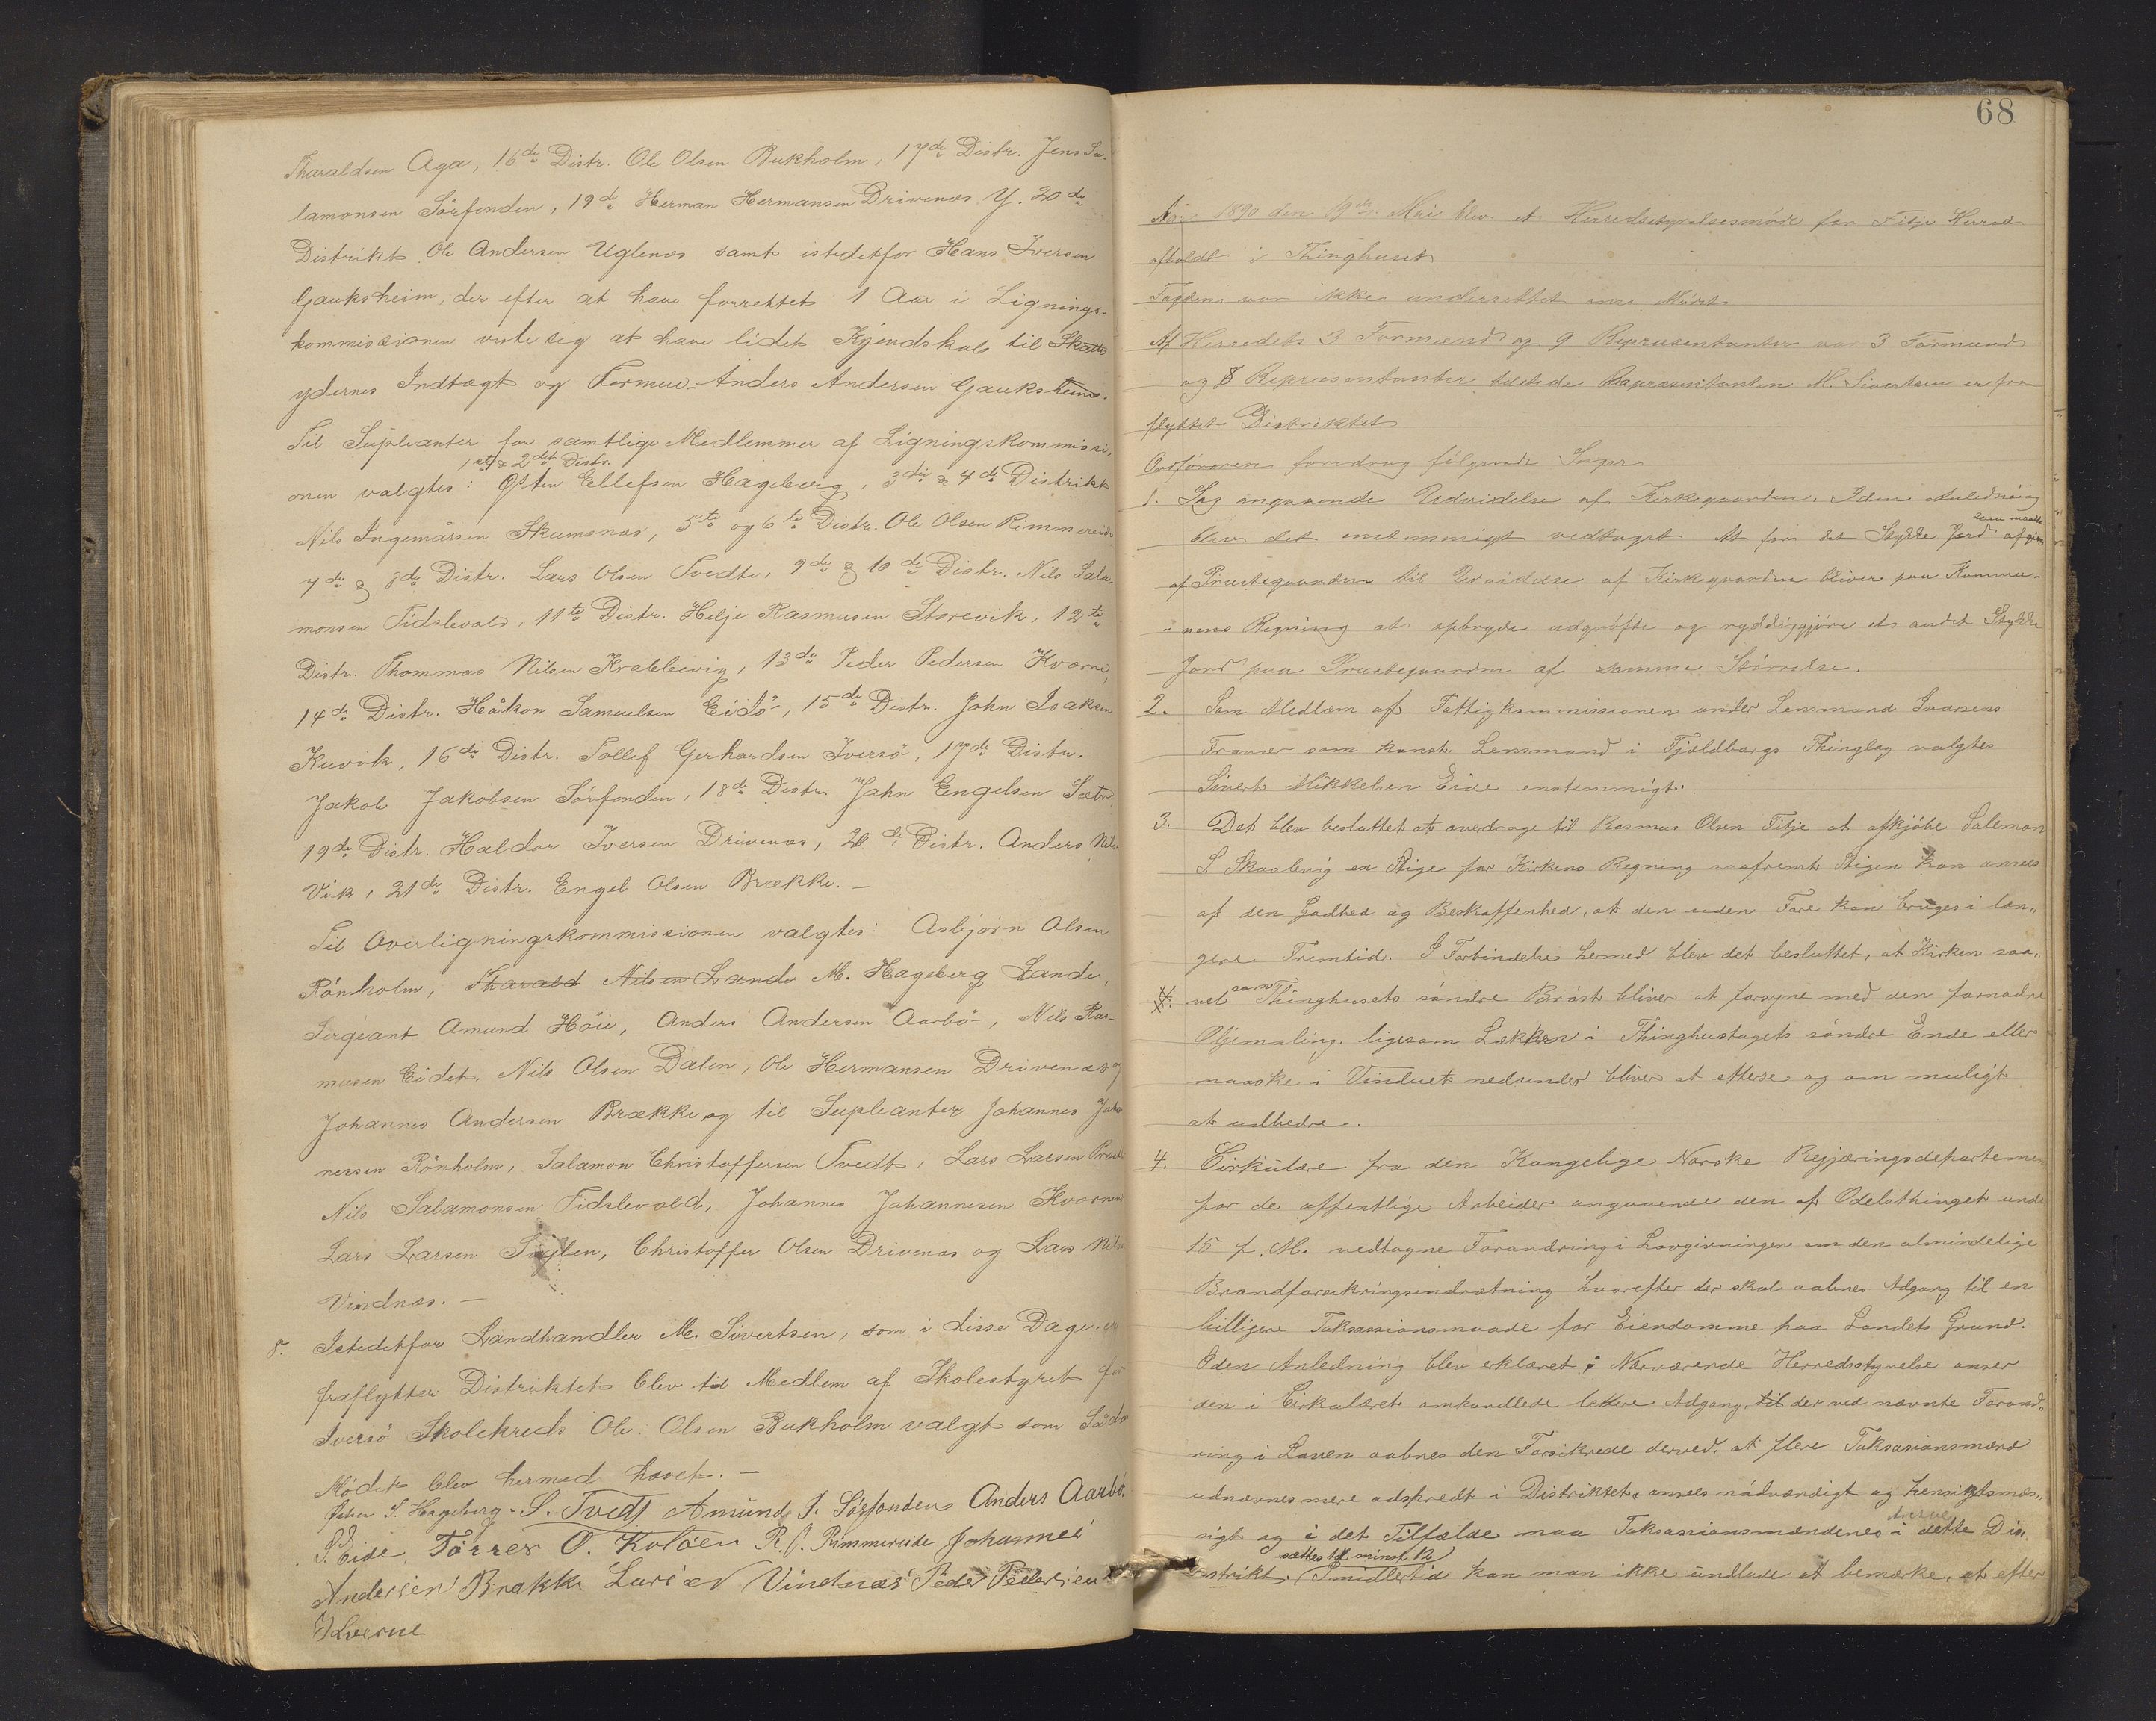 Tharaldsen Aga, 16de Distr. Ole Olsen Bukholm, 17de Distr. Jens Sa-
lamonsen Sörfonden, 19de Herman Hermansen Drivenes Y. 20de
Distrikt Ole Andersen Uglenes samt istedetfor Hans Iversen
Gauksheim, der efter at have forrettet 1 Aar i Lignings-
kommissionen viste sig at have lidet Kjendskab til Skatte
ydernes Indtægt og Formue - Anders Andersen Gauksheim.
Til Supleanter for samtlige Medlemmer af Ligningskommissi-
1ste & 2det Distr.
onen valgtes: Östen Ellefsen Hageberg, 3die & 4de Distrikt
Nils Ingemårsen Skumsnes, 5te og 6te Distr. Ole Olsen Rimmereide
7de & 8de Distr. Lars Olsen Tvedte, 9de & 10de Distr. Nils Sala-
monsen Tidslevold, 11te Distr. Helje Rasmusen Storevik, 12te
Distr. Thommas Nilsen Krabbevig, 13de Peder Pedersen Kverne,
14de Distr. Håkon Samuelsen Eidö, 15de Distr. John Isaksen
Kuvik, 16de Distr. Tollef Gerhardsen Iversö, 17de Distr.
Jakob Jakobsen Sörfonden, 18de Distr. Jahn Engelsen Sætr,
19de Distr. Haldor Iversen Drivenes, 20de Distr. Anders Nils
Vik, 21de Distr. Engel Olsen Brække. -
Til Overligningskommissionen valgtes: Asbjørn Olsen
Rönholm, Tharald Nilsen Lande M. Hageberg Lande,
Sergeant Amund Höie, Anders Andersen Aarbö, Nils Ras-
musen Eidet, Nils Olsen Dalen, Ole Hermansen Drivenes og
Johannes Andersen Brække og til Supleanter Johannes Johan
nessen Rönholm, Salamon Christoffersen Tvedt, Lars Larsen
Nils Salamonsen Tidslevold, Johannes Johannesen Kvernen
Lars Larsen Teglen, Christoffer Olsen Drivenes og Lars Nils
Vindnæs. -
8. Istedetfor Landhandler M. Sivertsen, som i disse Dage er
fraflytter Distriktet blev til Medlem af Skolestyret for
Iversö Skolekreds Ole Olsen Bukholm valgt som Sådan
Mödet blev hermed hævet. -
Östen S. Hageberg - S. Tvedt Amund J. Sörfonden Anders Aarbö.
S. Eide, Törres O. Koløen R. O. Rimmereide Johannes
Andersen Brakke Lars N Vindnæs Peder Pedersen
Kverne
68
Aar 1890 den 19de Mai blev et Herredsstyrelsesmøde for Fitje Herred
afholdt i Thinghuset
Fogden var ikke underrettet om Mödet
Af Herredets 3 Formænd og 9 Repræsentanter var 3 Formænd
og 8 Repræsentanter tilstede Repræsentanten M. Sivertsen er fra
flyttet Distriktet
Ordföreren foredrog fölgende Sager
1. Sag angaaende Udvidelse af Kirkegaarden. I den Anledning
som maatte
blev det enstemmigt vedtaget At for det Stykke Jord afgives
af Præstegaarden til Udvidelse af Kirkegaarden bliver paa Kommu-
nens Regning at opbryde udgröfte og ryddiggjöre et andet Stykke
Jord paa Præstegaarden af samme Störrelse.
2. Som Medlem af Fattigkommissionen under Lensmand Ivarsens
Fravær som konst. Lensmand i Fjeldbergs Thinglag valgtes
Sivert Mikkelsen Eide enstemmigt.
3. Det blev besluttet at overdrage til Rasmus Olsen Fitje at afkjöbe Salemon
S. Skaalevig en Stige for Kirkens Regning saafremt Stigen kan ansees
af den Godhed og Beskaffenhed, at den uden Fare kan bruges i læn-
gere Fremtid. I Forbindelse hermed blev det besluttet, at Kirken saa-
som
vel Thinghusets söndre Bröst bliver at forsyne med den fornödne
Oljemaling ligesom Lækken i Thinghustagets söndre Ende eller
maaske i Vinduet nedunder bliver at efterse og om muligt
at udbedre.
4. Cirkülære fra den Kongelige Norske Regjæringsdepartement
for de offentlige Arbeider angaaende den af Odelsthinget under
15 f. M. vedtagne Forandring i Lovgivningen om den almindelige
Brandforsikringsindretning hvorefter der skal aabnes Adgang til en
billigere Taksasionsmaade for Eiendomme paa Landets Grund.
I den Anledning blev erklæret: Nærværende Herredsstyrelse anser
den i Cirkulæret omhandlede lettere Adgang til der ved nævnte Forand-
ring i Loven aabnes den Forsikrede derved, at flere Taksasionsmænd
udnævnes mere adspredt i Distriktet, ansees nödvendigt og hensigtsmæs-
Antal
sigt og i det Tilfælde maa Taksasionsmændenes i dette Dis-
sættes til minst 12
strikt. Imidlertid kan man ikke ündlade at bemærke, at efter